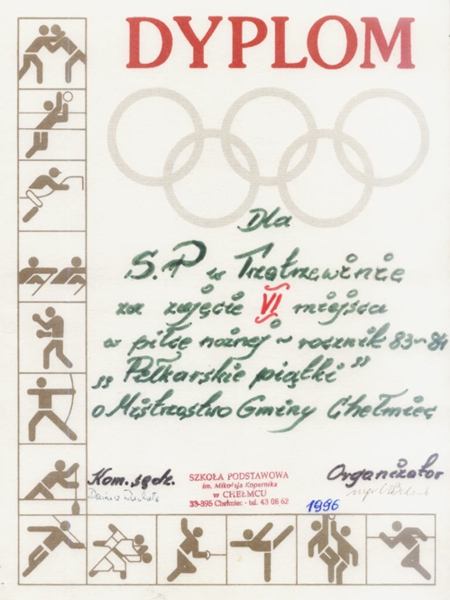 DYPLOM
Dla
S.P w Trzetrzewinie
za zajęcie VI miejsca
w piłce nożnej - rocznik 83-84
"Piłkarskie piątki"
o Mistrzostwo Gminy Chełmiec
Kom. sędz.
SZKOŁA PODSTAWOWA
im. Mikołaja Kopernika
w CHEŁMCU
33-395 Chełmiec - tel. 43 08 62
Organizator
1996